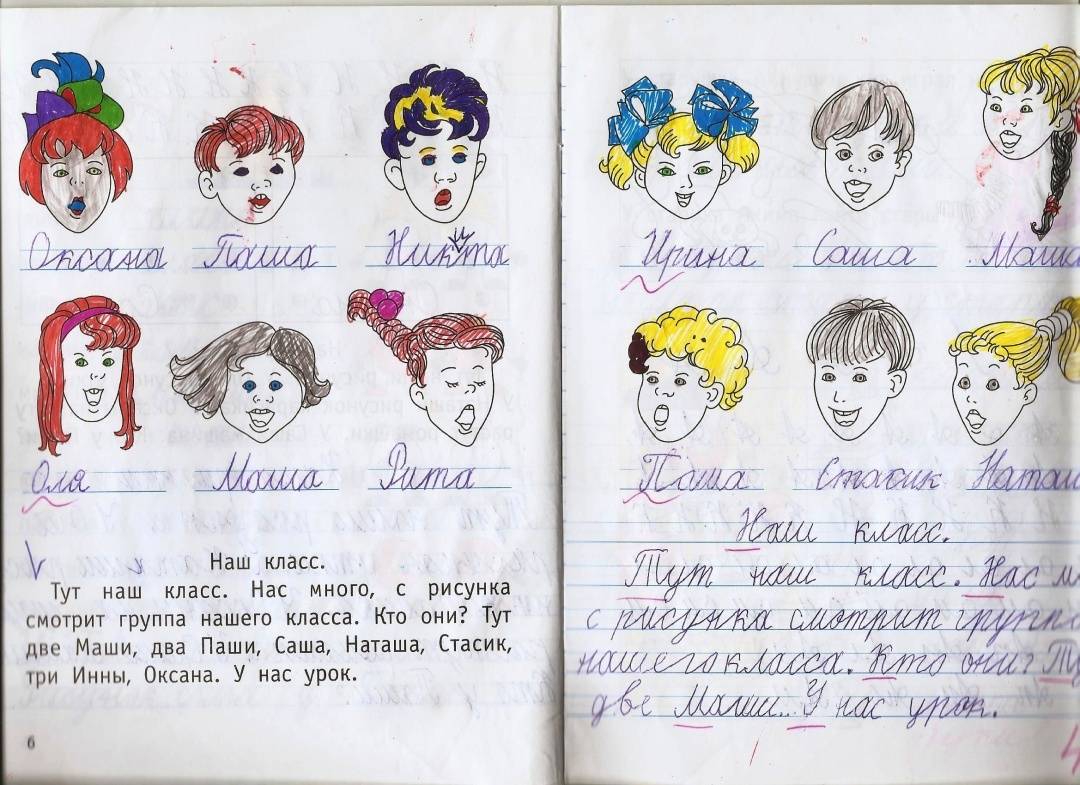 Оксана Паша Никита
Оля Маша Рита
Наш класс.
Тут наш класс. Нас много, с рисунка
смотрит группа нашего класса. Кто они? Тут
две Маши, два Паши, Саша, Наташа, Стасик,
три Инны, Оксана. У нас урок.
6
Ирина Саша Маша
Паша Стасик Наташ
Наш класс.
Тут наш класс. Нас м
с рисунка смотрит групп
нашего класса. Кто они? Ту
две Маши. У нас урок.